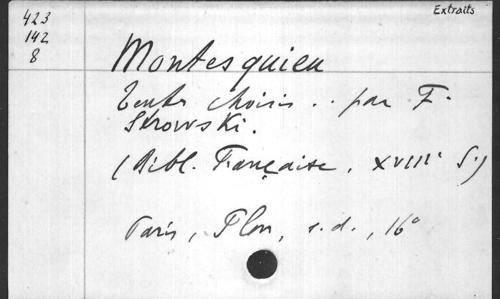 Extraits
423
142
8
Montesquieu
Textes choisis .. par F.
Strowski.
(Bibl. Française, XVIIIe S.)
Paris, Plon, s.d., 16°